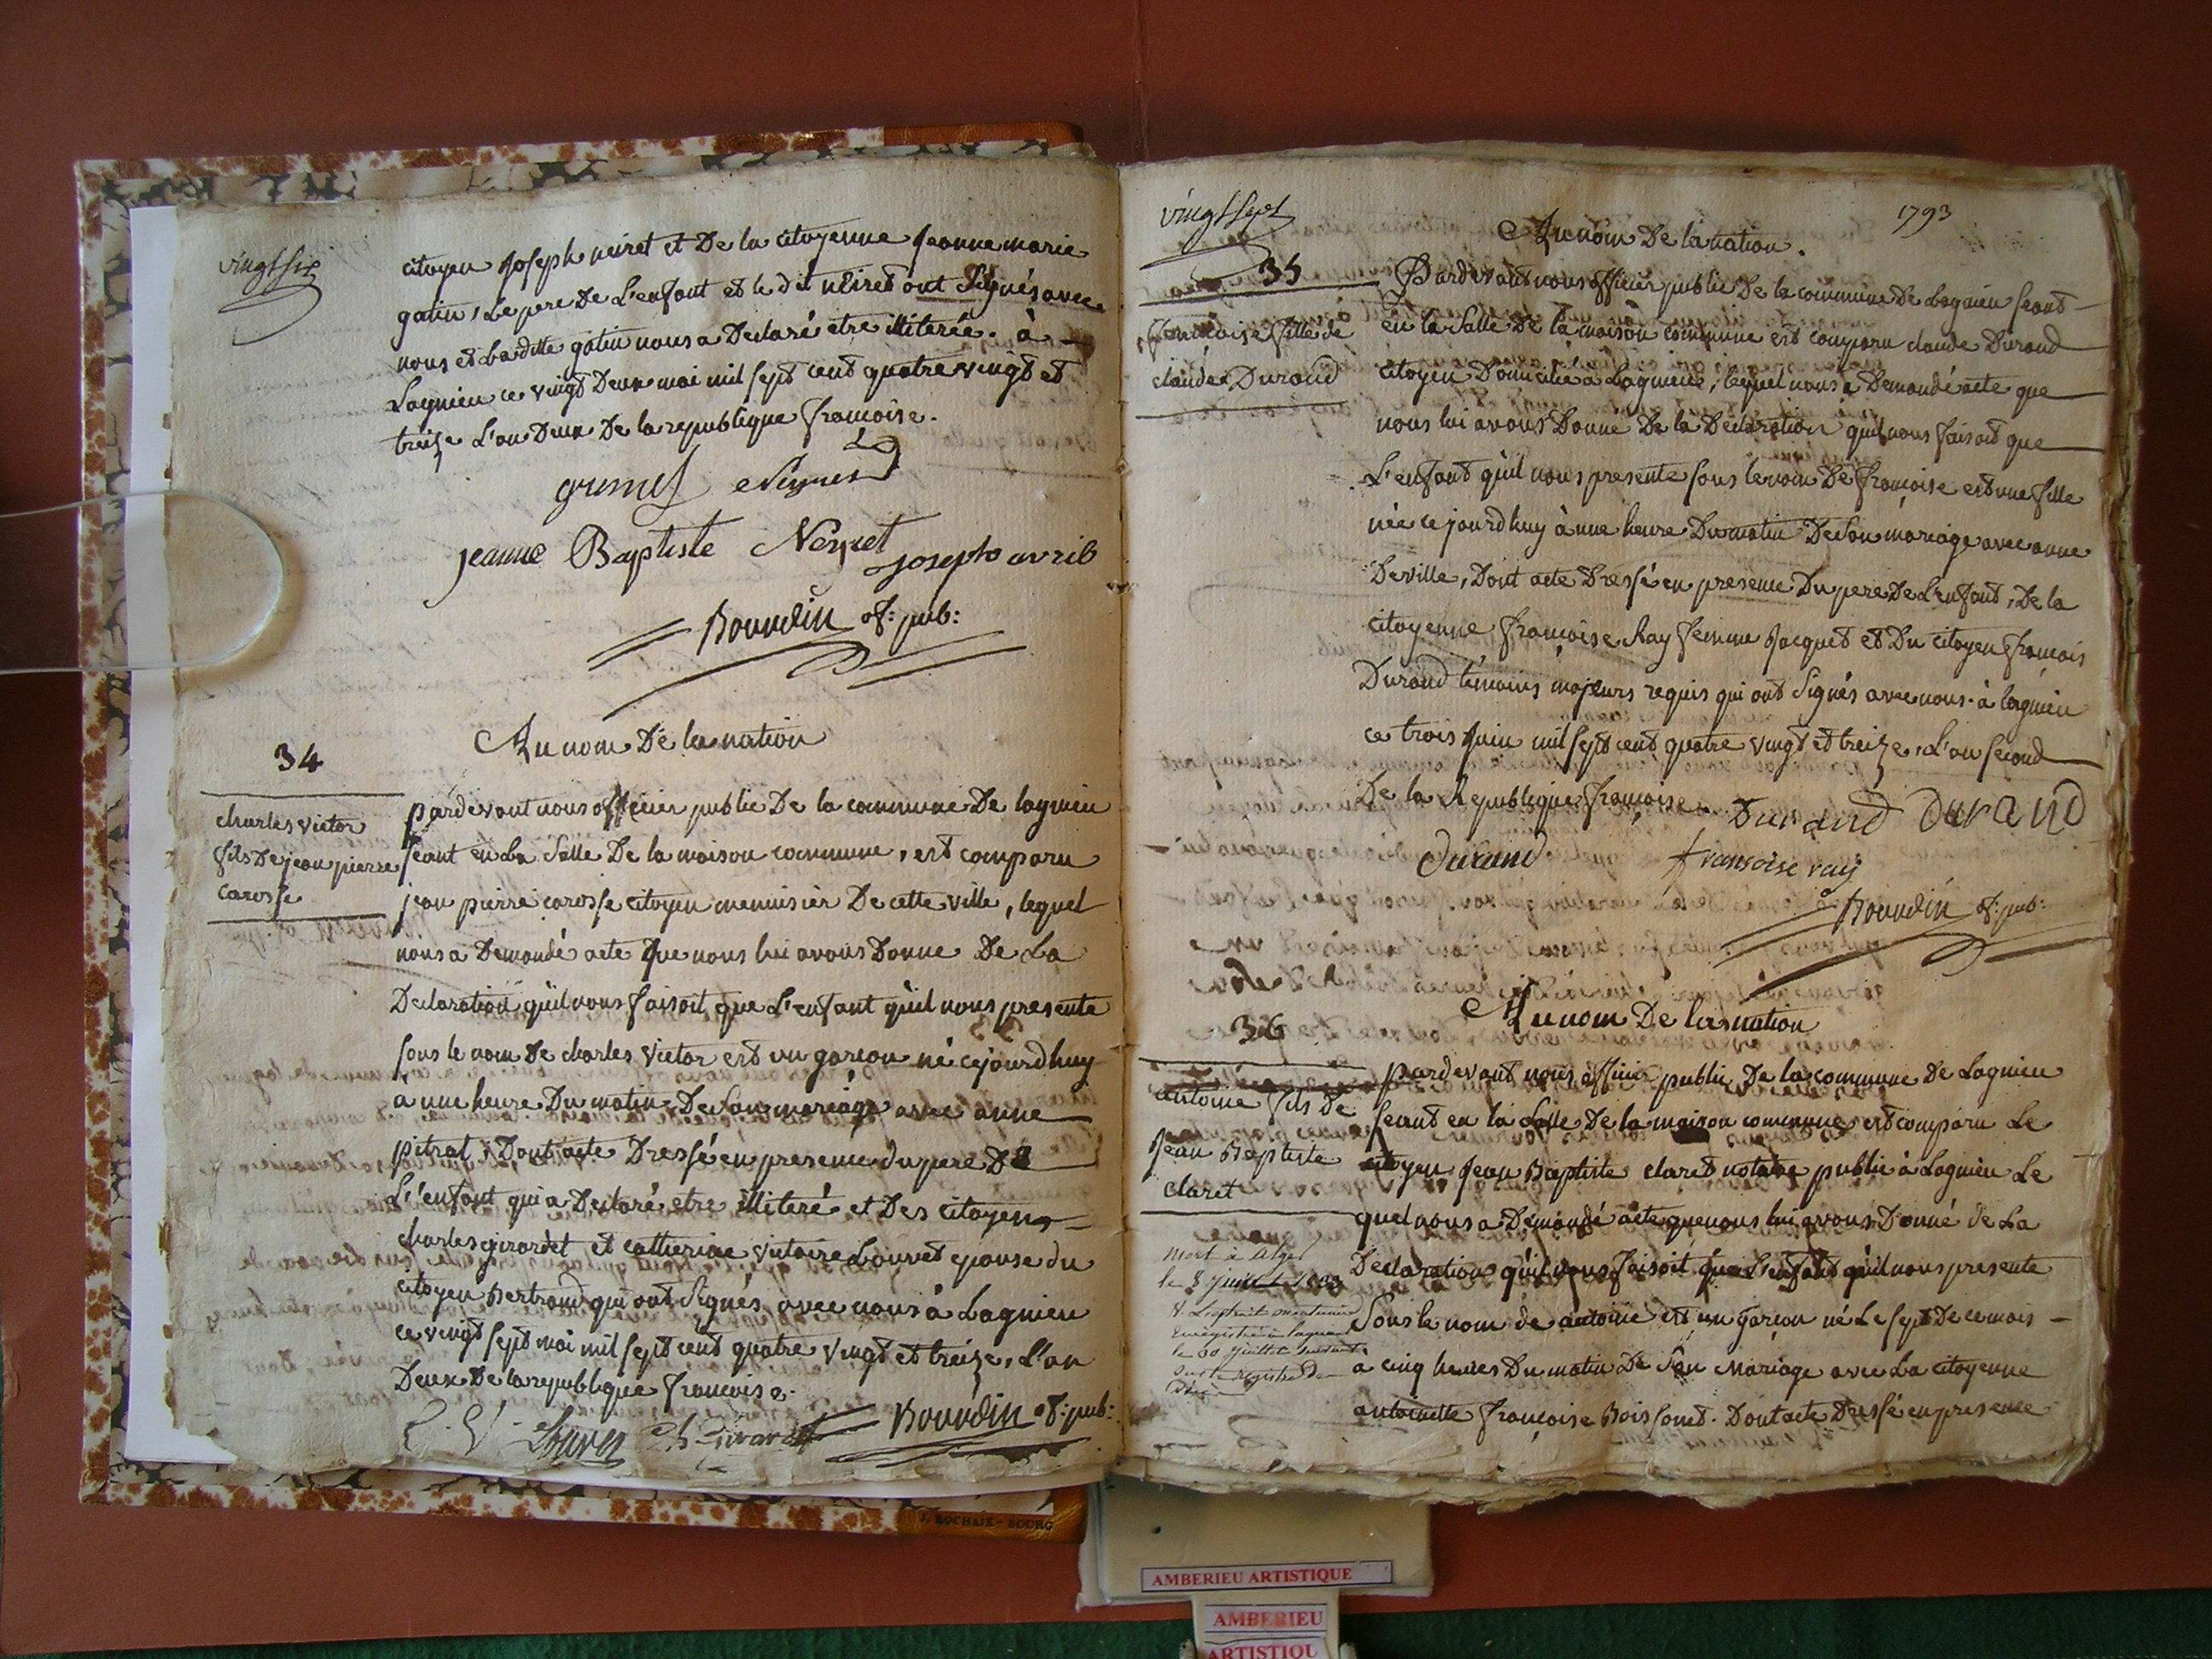 vingt six
citoyen Joseph neiret et De la citoyenne Jeanne marie
gatin, Le pere De L'enfant et le dit neiret ont Signés avec
nous et Laditte gatin nous a Declaré etre illiterée. à
Lagnieu ce vingt Deux mai mil sept cent quatre vingt et
treize L'an Deux De la republique francoise.
jeanne Baptiste Neyret
Joseph avril
Bourdin of: pub:
34
Au nom De la nation
charles victor
fils De jean pierre
carosse
pardevant nous officier public De la commune De lagnieu
seant en La Salle De la maison commune, est comparu
jean pierre carosse citoyen menuisier De cette ville, lequel
nous a Demandé acte que nous lui avons Donne De La
Declaration quil nous faisoit que L'enfant quil nous presente
sous le nom De charles victor est un garcon né cejourdhuy
à une heure Du matin De son mariage avec anne
pitrat, Dont acte Dressé en presence du pere De
L'enfant qui a Declaré etre illiteré et Des citoyens
charles girardet et catherine victoire Louvet epouse du
citoyen Bertrand qui ont Signés avec nous à Lagnieu
ce vingt sept mai mil sept cent quatre vingt et treize, L'an
Deux De la republique francoise.
Ch girardet
Bourdin of: pub:
J. ROCHAIX - BOURG
vingt sept
1793
35
Au nom De la nation.
francoise fille de
claude Durand
Pardevant nous officier public De la commune De Lagnieu seant
en la Salle De la maison commune est comparu claude Durand
citoyen Domicilié à Lagnieu, lequel nous a Demandé acte que
nous lui avons Donné De la Declaration quil nous faisoit que
L'enfant quil nous presente sous le nom De françoise est une fille
née ce jourdhuy à une heure Du matin De son mariage avec anne
Deville, Dont acte Dressé en presence Du pere De L'enfant, De la
citoyenne françoise Ray femme Jacquet et Du citoyen francois
Durand témoins majeurs requis qui ont Signés avec nous. à lagnieu
ce trois Juin mil sept cent quatre vingt et treize, L'an second
De la Republique françoise.
Durand Durand
Durand
fransoise ray
Bourdin of: pub:
36
Au nom De la nation
antoine fils de
Jean Baptiste
claret
mort à Alger
le 8 juin
pardevant nous officier public De la commune De Lagnieu
seant en la Salle De la maison commune est comparu Le
citoyen Jean Baptiste claret notaire public à Lagnieu Le
quel nous a Demandé acte que nous lui avons Donné de La
Declaration quil nous faisoit que L'enfant quil nous presente
Sous le nom de antoine est un garcon né Le sept De ce mois
a cinq heures Du matin De Son Mariage avec La citoyenne
antoinette françoise Boissonet. Dont acte Dressé en presence
AMBERIEU ARTISTIQUE
AMBERIEU
ARTISTIQU